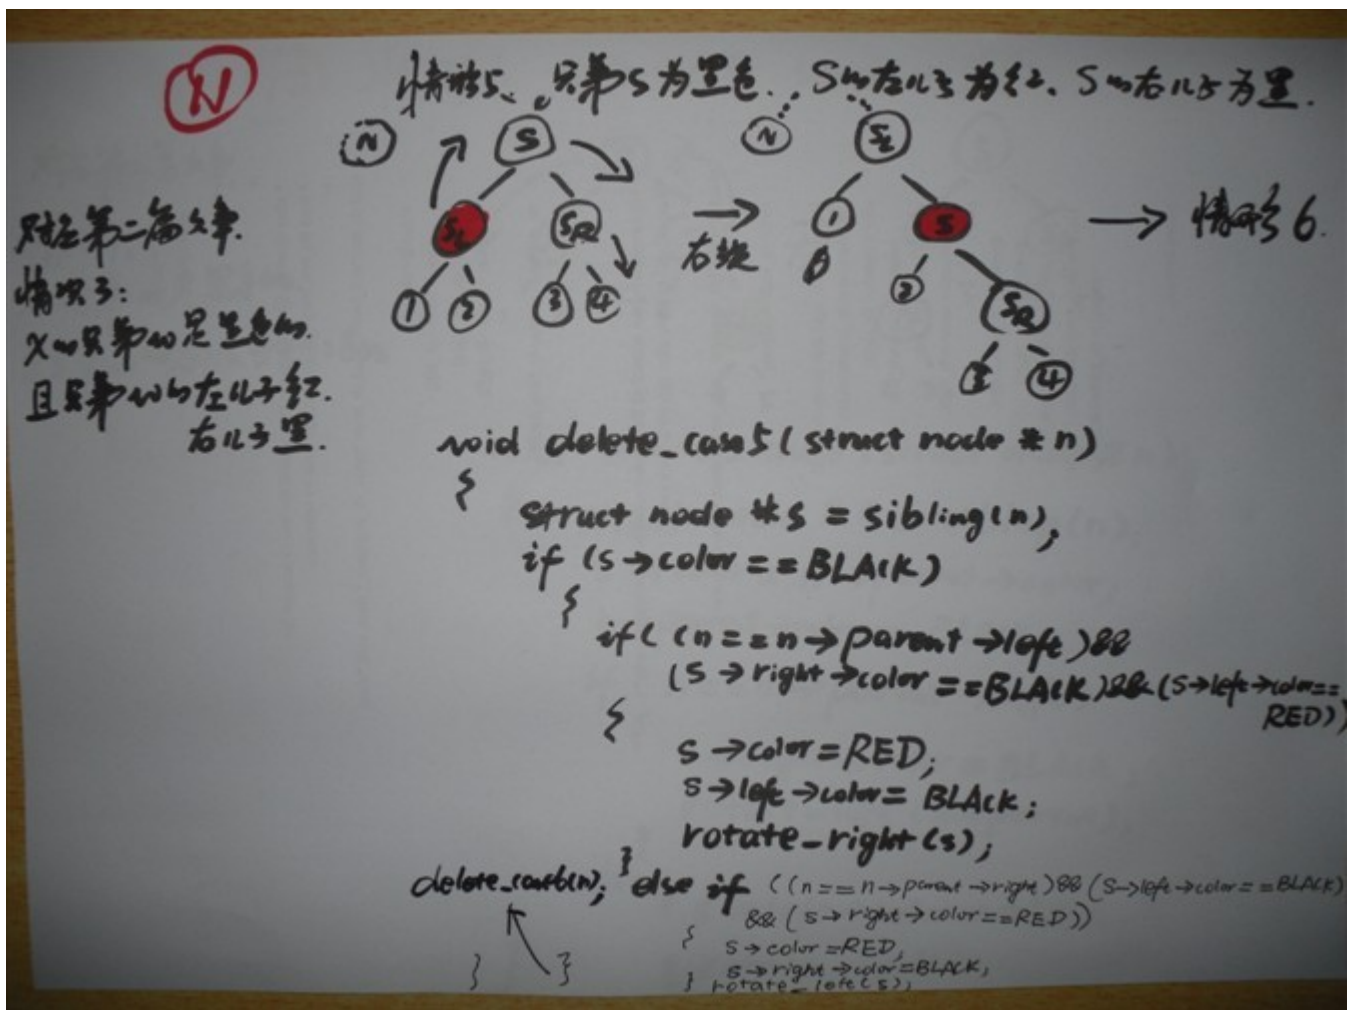 N
情形5、兄弟S为黑色、S的左儿子为红、S的右儿子为黑.
N S N SL
对应第二篇文章.
SL SR 1 S
右旋
情形6.
情况3:
1 2 3 4 2 SR
X的兄弟w是黑色的.
且兄弟w的左儿子红.
3 4
右儿子黑.
void delete_case5(struct node *n)
{
struct node *s = sibling(n);
if (s→color==BLACK)
{
if( (n==n→parent→left)&&
(s→right→color==BLACK)&&(s→left→color==
RED))
{
s→color=RED;
s→left→color= BLACK;
rotate_right(s);
delete_case6(n); } else if ((n==n→parent→right)&&(s→left→color==BLACK)
&&(s→right→color==RED))
{
s→color=RED,
s→right→color=BLACK,
} } } rotate_left(s);